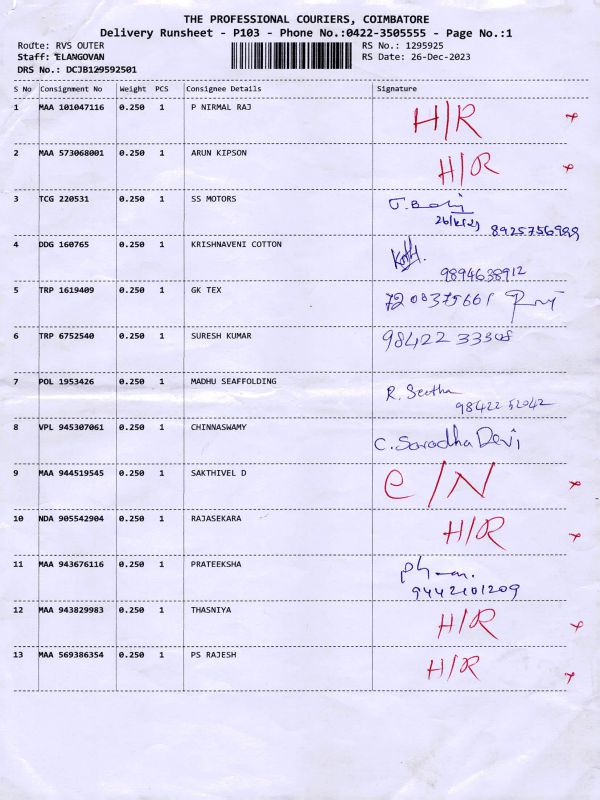 THE PROFESSIONAL COURIERS, COIMBATORE
Delivery Runsheet - P103 - Phone No.:0422-3505555 - Page No.:1
Route: RVS OUTER RS No.: 1295925
Staff: ELANGOVAN RS Date: 26-Dec-2023
DRS No.: DCJB129592501
S No Consignment No Weight PCS Consignee Details Signature
1 MAA 101047116 0.250 1 P NIRMAL RAJ H/R x
2 MAA 573068001 0.250 1 ARUN KIPSON H/R x
3 TCG 220531 0.250 1 SS MOTORS
8925756999
4 DDG 160765 0.250 1 KRISHNAVENI COTTON
9894638912
5 TRP 1619409 0.250 1 GK TEX 7200375661
6 TRP 6752540 0.250 1 SURESH KUMAR 98422 33308
7 POL 1953426 0.250 1 MADHU SEAFFOLDING R. Seetha
98422 52042
8 VPL 945307061 0.250 1 CHINNASWAMY C. Saradha Devi
9 MAA 944519545 0.250 1 SAKTHIVEL D C/N x
10 NDA 905542904 0.250 1 RAJASEKARA H/R x
11 MAA 943676116 0.250 1 PRATEEKSHA
9442101209
12 MAA 943829983 0.250 1 THASNIYA H/R x
13 MAA 569386354 0.250 1 PS RAJESH H/R x